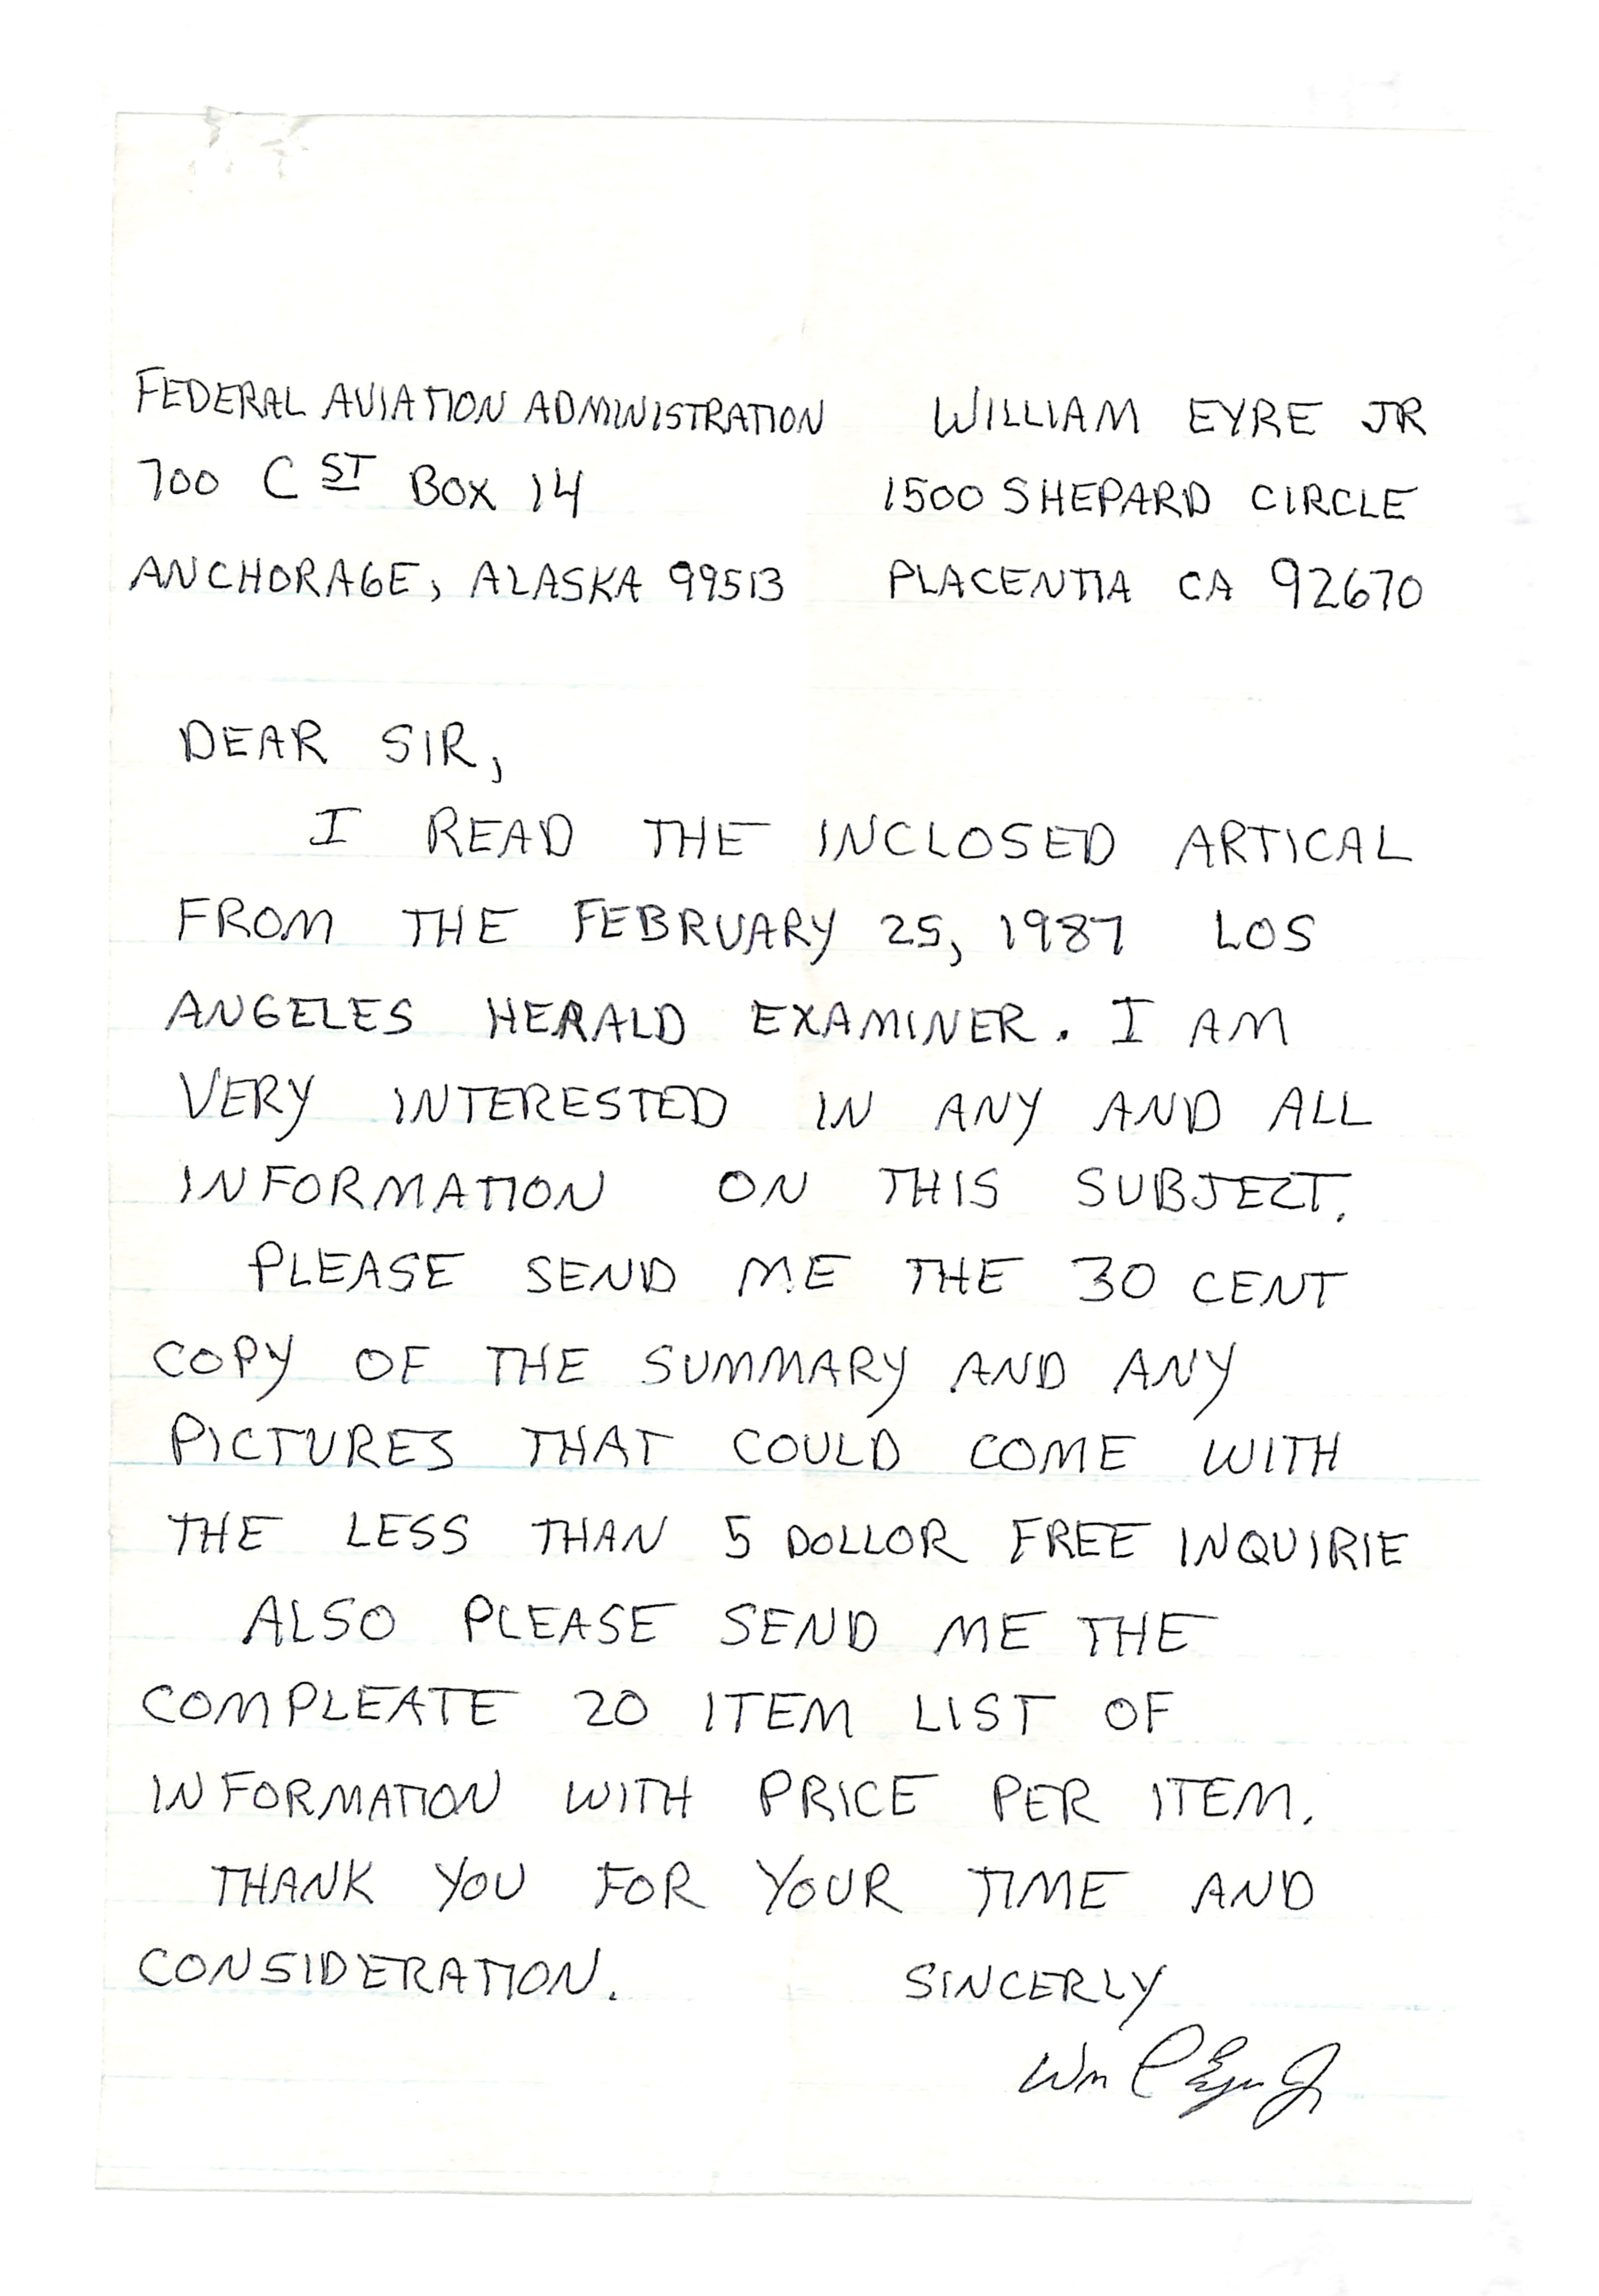 FEDERAL AVIATION ADMINISTRATION
700 C ST BOX 14
ANCHORAGE, ALASKA 99513
WILLIAM EYRE JR
1500 SHEPARD CIRCLE
PLACENTIA CA 92670
DEAR SIR,
I READ THE INCLOSED ARTICAL
FROM THE FEBRUARY 25, 1987 LOS
ANGELES HERALD EXAMINER. I AM
VERY INTERESTED IN ANY AND ALL
INFORMATION ON THIS SUBJECT.
PLEASE SEND ME THE 30 CENT
COPY OF THE SUMMARY AND ANY
PICTURES THAT COULD COME WITH
THE LESS THAN 5 DOLLOR FREE INQUIRIE
ALSO PLEASE SEND ME THE
COMPLEATE 20 ITEM LIST OF
INFORMATION WITH PRICE PER ITEM.
THANK YOU FOR YOUR TIME AND
CONSIDERATION.
SINCERLY
Wm P Eyre Jr